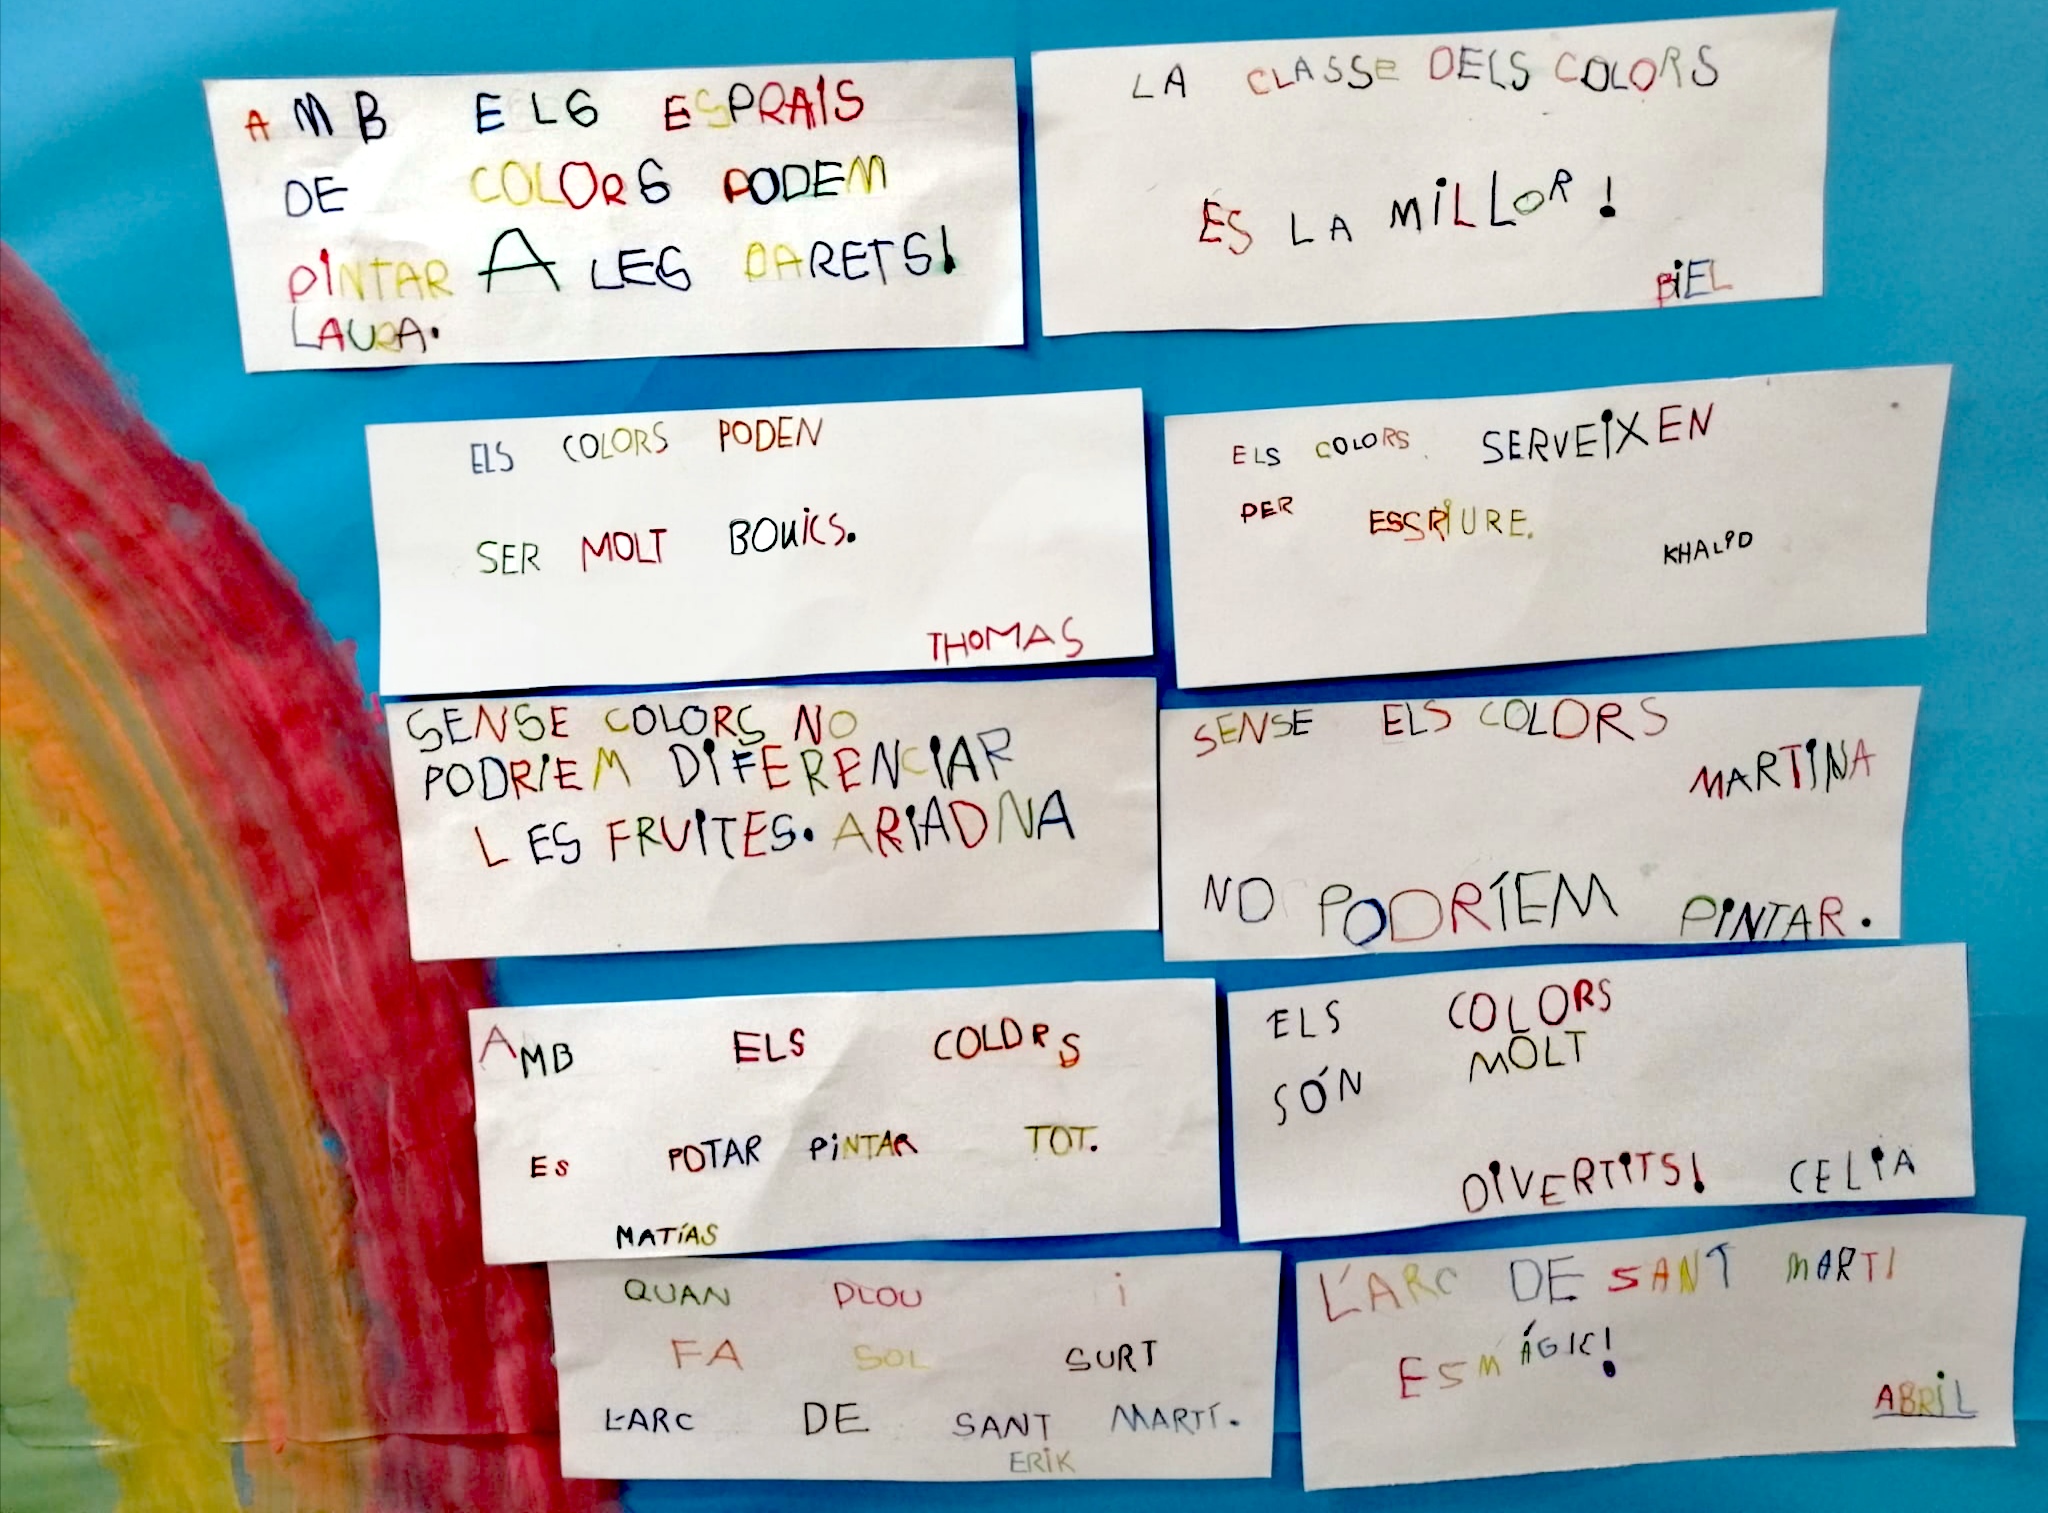 AMB ELS ESPRAIS
DE COLORS PODEM
PINTAR A LES PARETS!
LAURA.
LA CLASSE DELS COLORS
ÉS LA MILLOR!
BIEL
ELS COLORS PODEN
SER MOLT BONICS.
THOMAS
ELS COLORS SERVEIXEN
PER ESCRIURE.
KHALID
SENSE COLORS NO
PODRIEM DIFERENCIAR
LES FRUITES. ARIADNA
SENSE ELS COLORS
MARTINA
NO PODRÍEM PINTAR.
AMB ELS COLORS
ES POTAR PINTAR TOT.
MATÍAS
ELS COLORS
SÓN MOLT
DIVERTITS! CELIA
QUAN PLOU i
FA SOL SURT
L'ARC DE SANT MARTÍ.
ERIK
L'ARC DE SANT MARTI
ES MÁGIC!
ABRIL